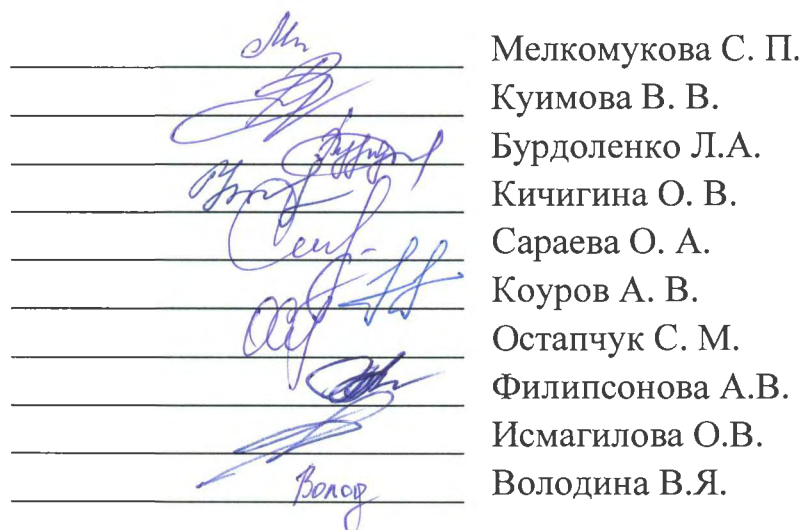 Мелкомукова С. П.
Куимова В. В.
Бурдоленко Л.А.
Кичигина О. В.
Сараева О. А.
Коуров А. В.
Остапчук С. М.
Филипсонова А.В.
Исмагилова О.В.
Волод Володина В.Я.